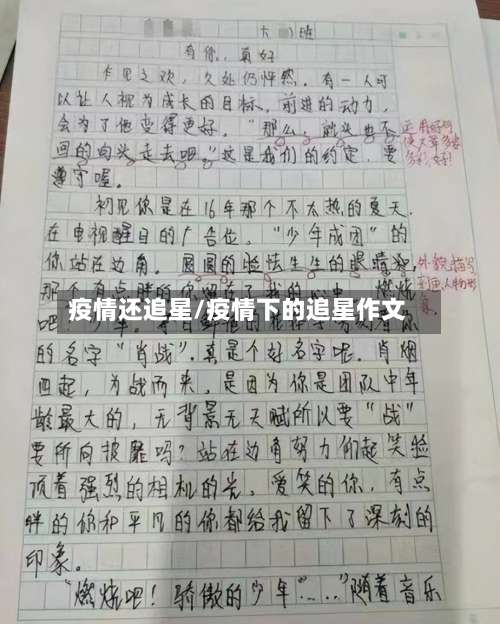 班
有你，真好
乍见之欢，久处仍怦然。有一人可
以让人视为成长的目标、前进的动力，
会为了他变得更好。"那么，就头也不
回的向头走去吧。"这是我们的约定，要
遵守喔。
运用好句
使文章多姿
多彩，好！
初见你是在16年那个不太热的夏天.
在电视醒目的广告位。"少年成团"的
你站在边角。圆圆的脸怯生生的眼睛
外貌描写
人物形
疫情还追星/疫情下的追星作文
的名字"肖战"，真是个好名字呢。肖烟
四起，为战而来，是因为你是团队中年
龄最大的，无背景无天赋所以要"战"
要所向披靡吗？站在边角努力仰起笑脸
顶着强烈的相机的光。爱笑的你，有点
胖的你和平凡的你都给我留下了深刻的
印象。
"燃烧吧！骄傲的少年"……"随着音乐